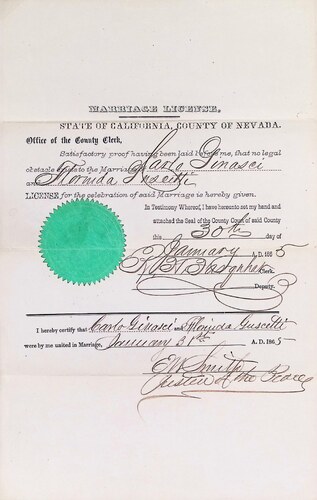 MARRIAGE LICENSE.
STATE OF CALIFORNIA, COUNTY OF NEVADA.
Office of the County Clerk,
Satisfactory proof having been laid before me, that no legal
obstacle exists to the Marriage of Carlo Ginasci
and Florinda Guscetti
LICENSE for the celebration of said Marriage is hereby given.
In Testimony Whereof, I have hereunto set my hand and
attached the Seal of the County Court of said County
this 30th day of
January A.D. 1865
Clerk.
Deputy.
I hereby certify that Carlo Ginasci and Florinda Guscetti
were by me united in Marriage, January 31st A. D. 1865
E W Smith
Justice of the Peace